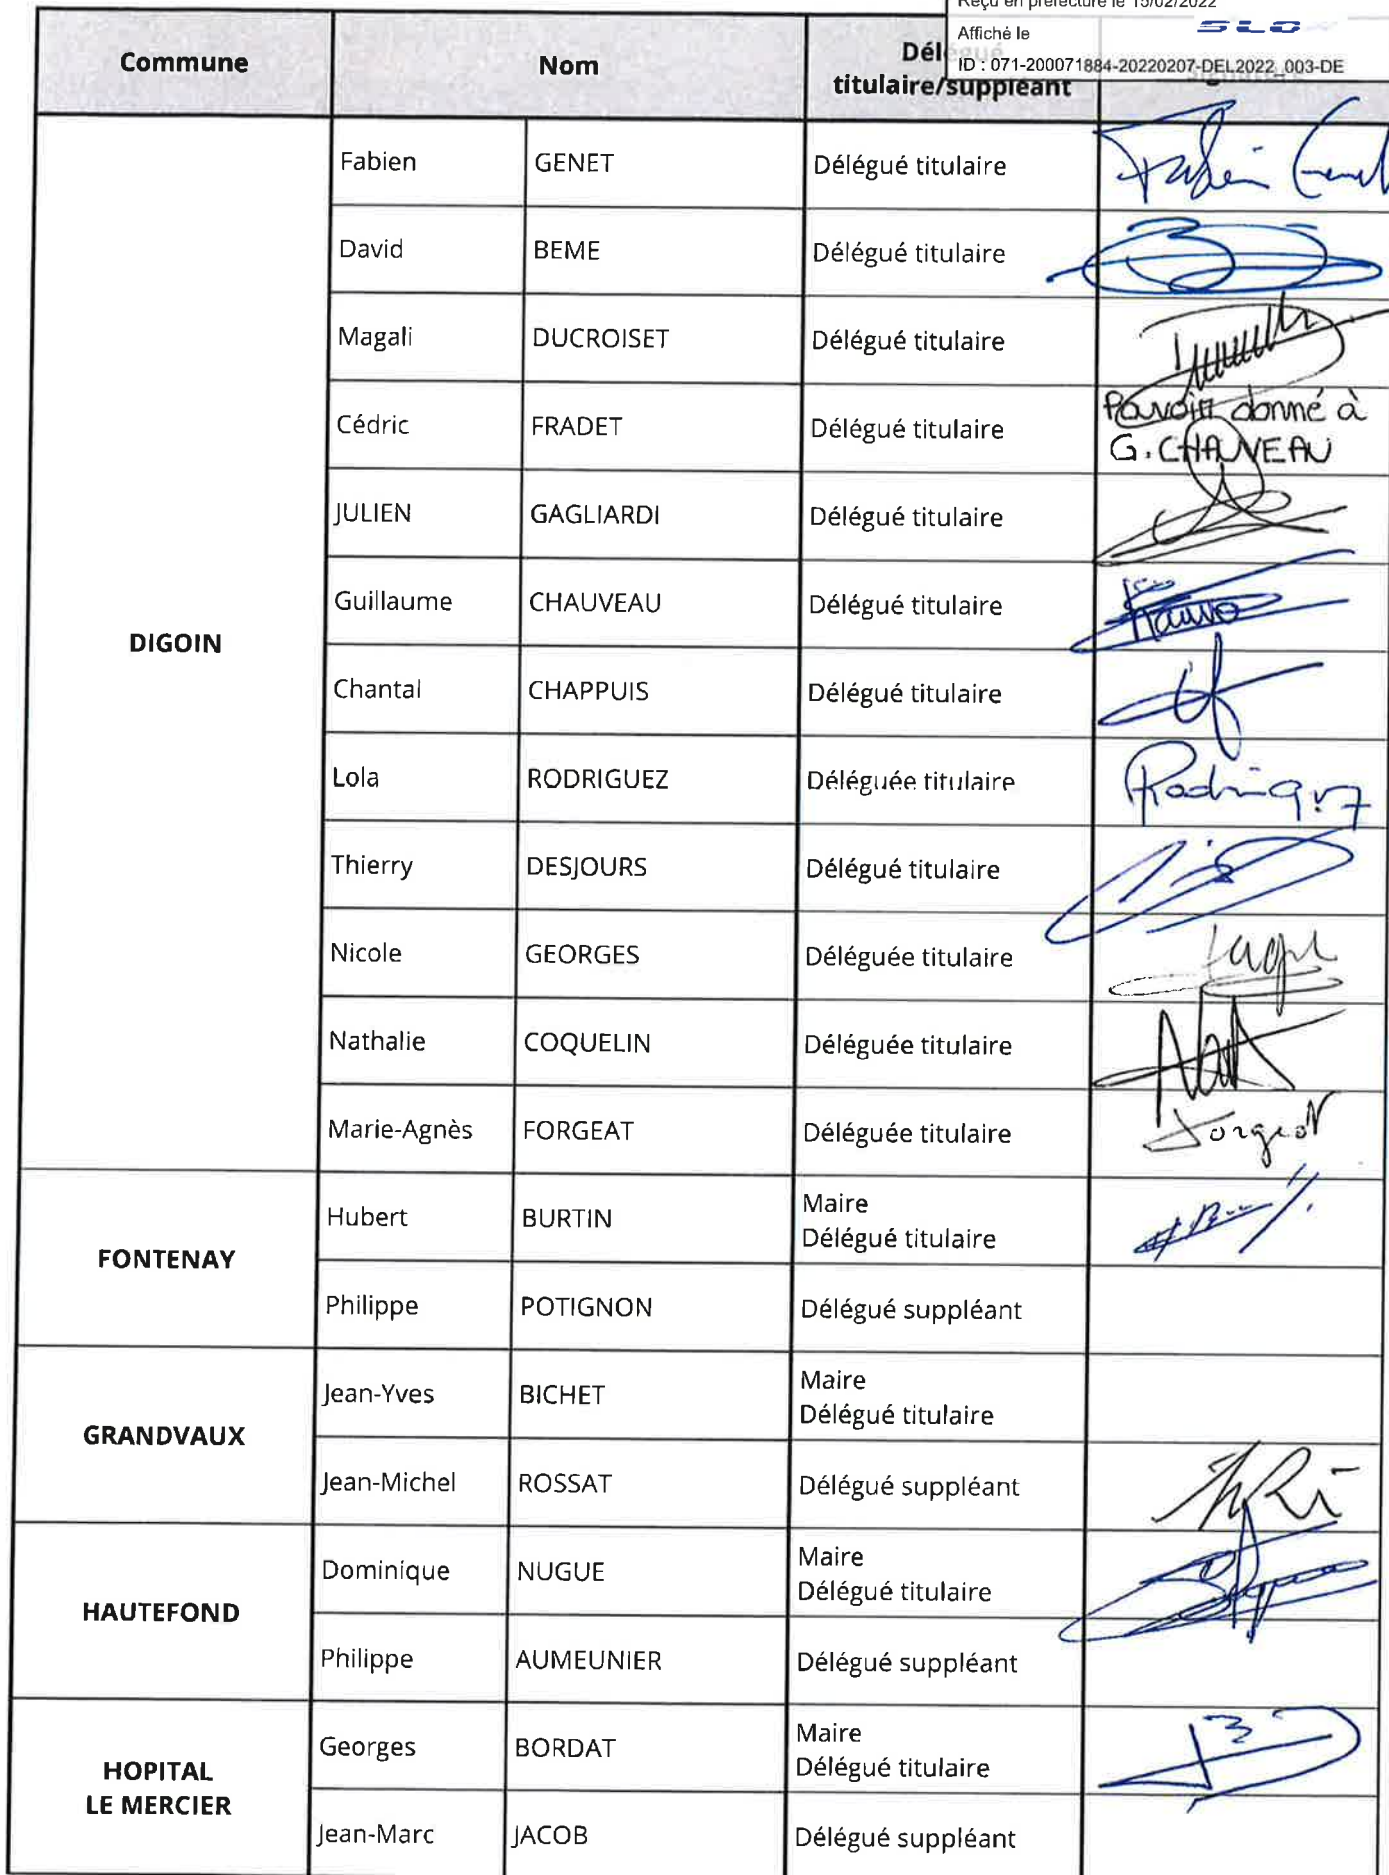 Reçu en préfecture le 15/02/2022
Affiché le
SLO
ID : 071-200071884-20220207-DEL2022_003-DE
Commune Nom Délégué
titulaire/suppléant
DIGOIN
Fabien GENET Délégué titulaire Fabien Genet
David BEME Délégué titulaire
Magali DUCROISET Délégué titulaire
Cédric FRADET Délégué titulaire Pouvoir donné à
G. CHAUVEAU
JULIEN GAGLIARDI Délégué titulaire
Guillaume CHAUVEAU Délégué titulaire
Chantal CHAPPUIS Délégué titulaire
Lola RODRIGUEZ Déléguée titulaire Rodriguez
Thierry DESJOURS Délégué titulaire
Nicole GEORGES Déléguée titulaire
Nathalie COQUELIN Déléguée titulaire
Marie-Agnès FORGEAT Déléguée titulaire Forgeat
FONTENAY
Hubert BURTIN Maire
Délégué titulaire
Philippe POTIGNON Délégué suppléant
GRANDVAUX
Jean-Yves BICHET Maire
Délégué titulaire
Jean-Michel ROSSAT Délégué suppléant
HAUTEFOND
Dominique NUGUE Maire
Délégué titulaire
Philippe AUMEUNIER Délégué suppléant
HOPITAL
LE MERCIER
Georges BORDAT Maire
Délégué titulaire
Jean-Marc JACOB Délégué suppléant